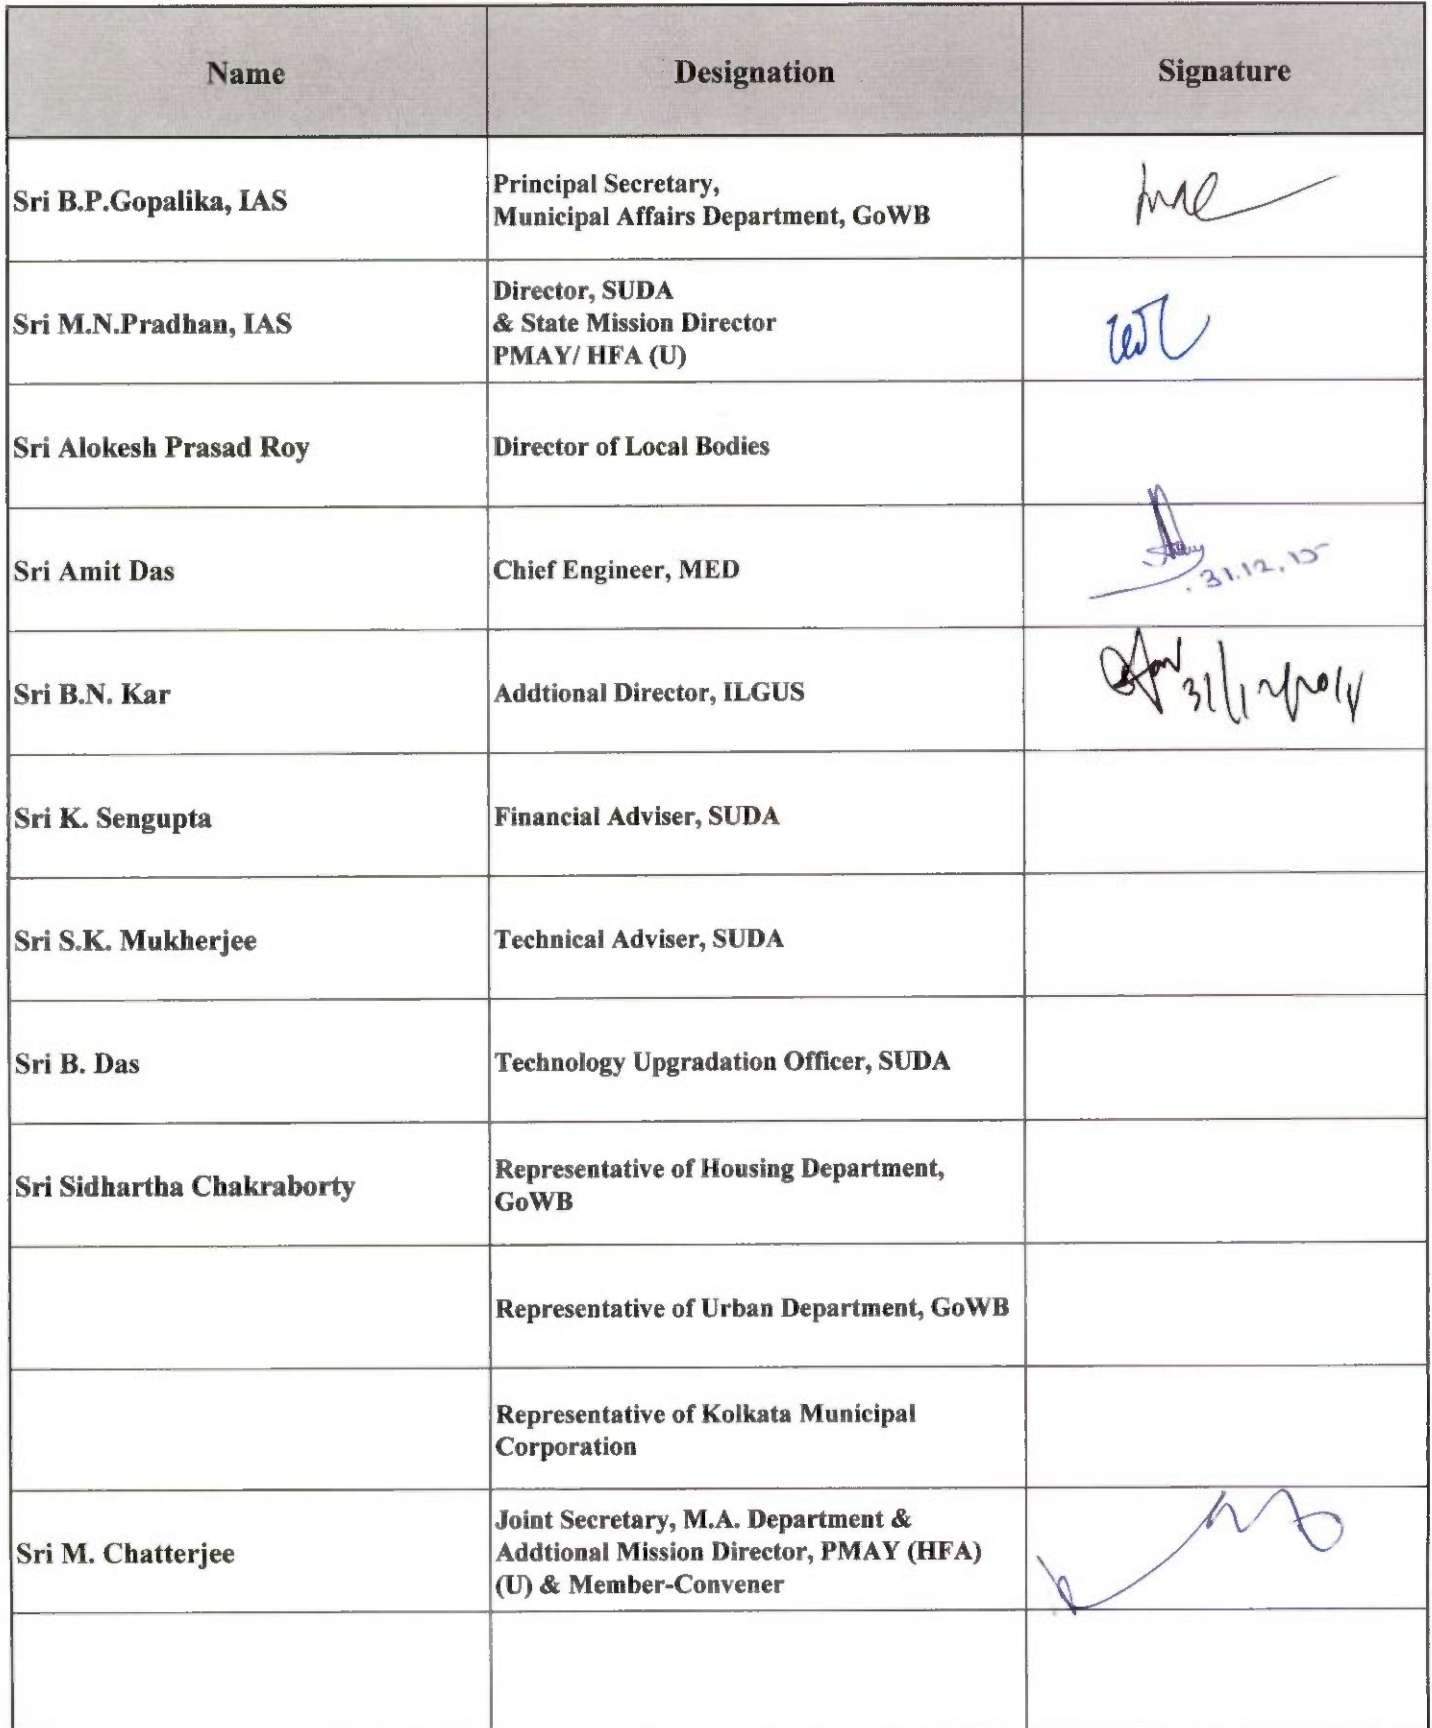 Name Designation Signature
Sri B.P.Gopalika, IAS
Principal Secretary,
Municipal Affairs Department, GoWB
Sri M.N.Pradhan, IAS
Director, SUDA
& State Mission Director
PMAY/ HFA (U)
Sri Alokesh Prasad Roy
Director of Local Bodies
Sri Amit Das
Chief Engineer, MED
31.12.15
Sri B.N. Kar
Addtional Director, ILGUS
Sri K. Sengupta
Financial Adviser, SUDA
Sri S.K. Mukherjee
Technical Adviser, SUDA
Sri B. Das
Technology Upgradation Officer, SUDA
Sri Sidhartha Chakraborty
Representative of Housing Department,
GoWB
Representative of Urban Department, GoWB
Representative of Kolkata Municipal
Corporation
Sri M. Chatterjee
Joint Secretary, M.A. Department &
Addtional Mission Director, PMAY (HFA)
(U) & Member-Convener